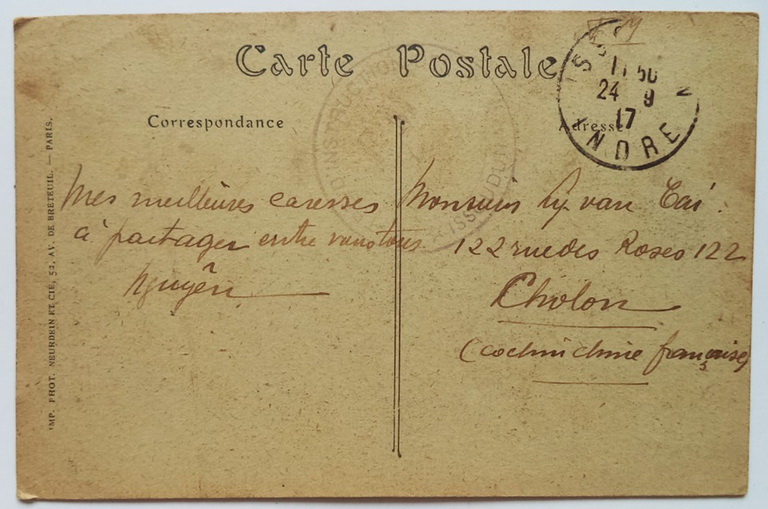 Carte Postale
Correspondance
Adresse
11 50
24 9
17
INDRE
Mes meilleures caresses
à partager entre vous tous.
Nguyên
Monsieur Ly van Tai.
122 rue des Roses 122
Cholon
(Cochinchine française)
IMP. PHOT. NEURDEIN ET CIE, 52, AV. DE BRETEUIL. — PARIS.